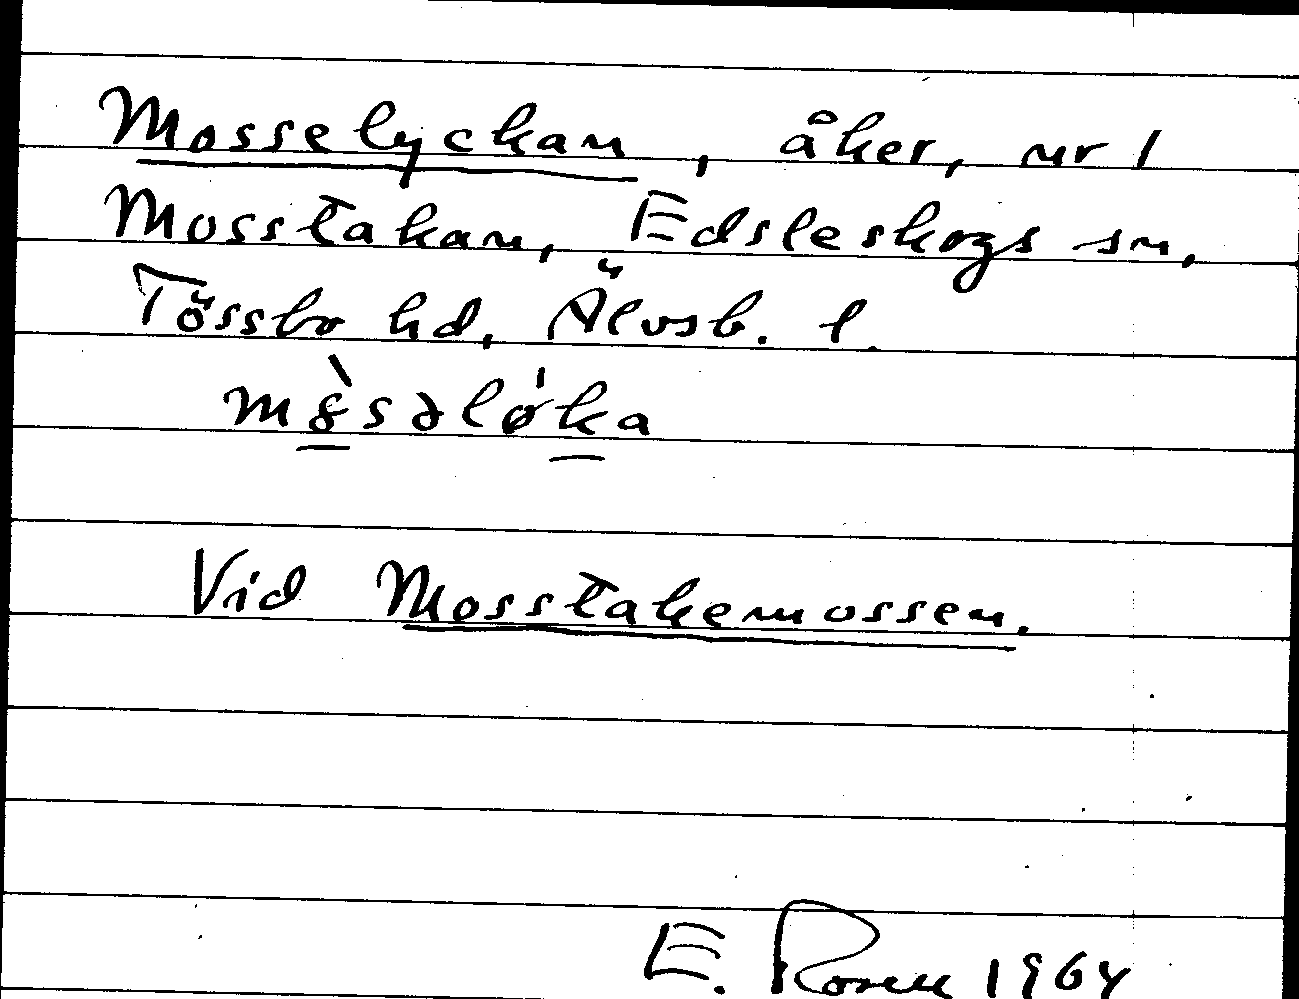 Mosselyckan, åker, nr 1
Mosstakan, Edsleskogs sn,
Tössbo hd, Älvsb. l.
Vid Mosstakemossen.
E. Rosen 1964